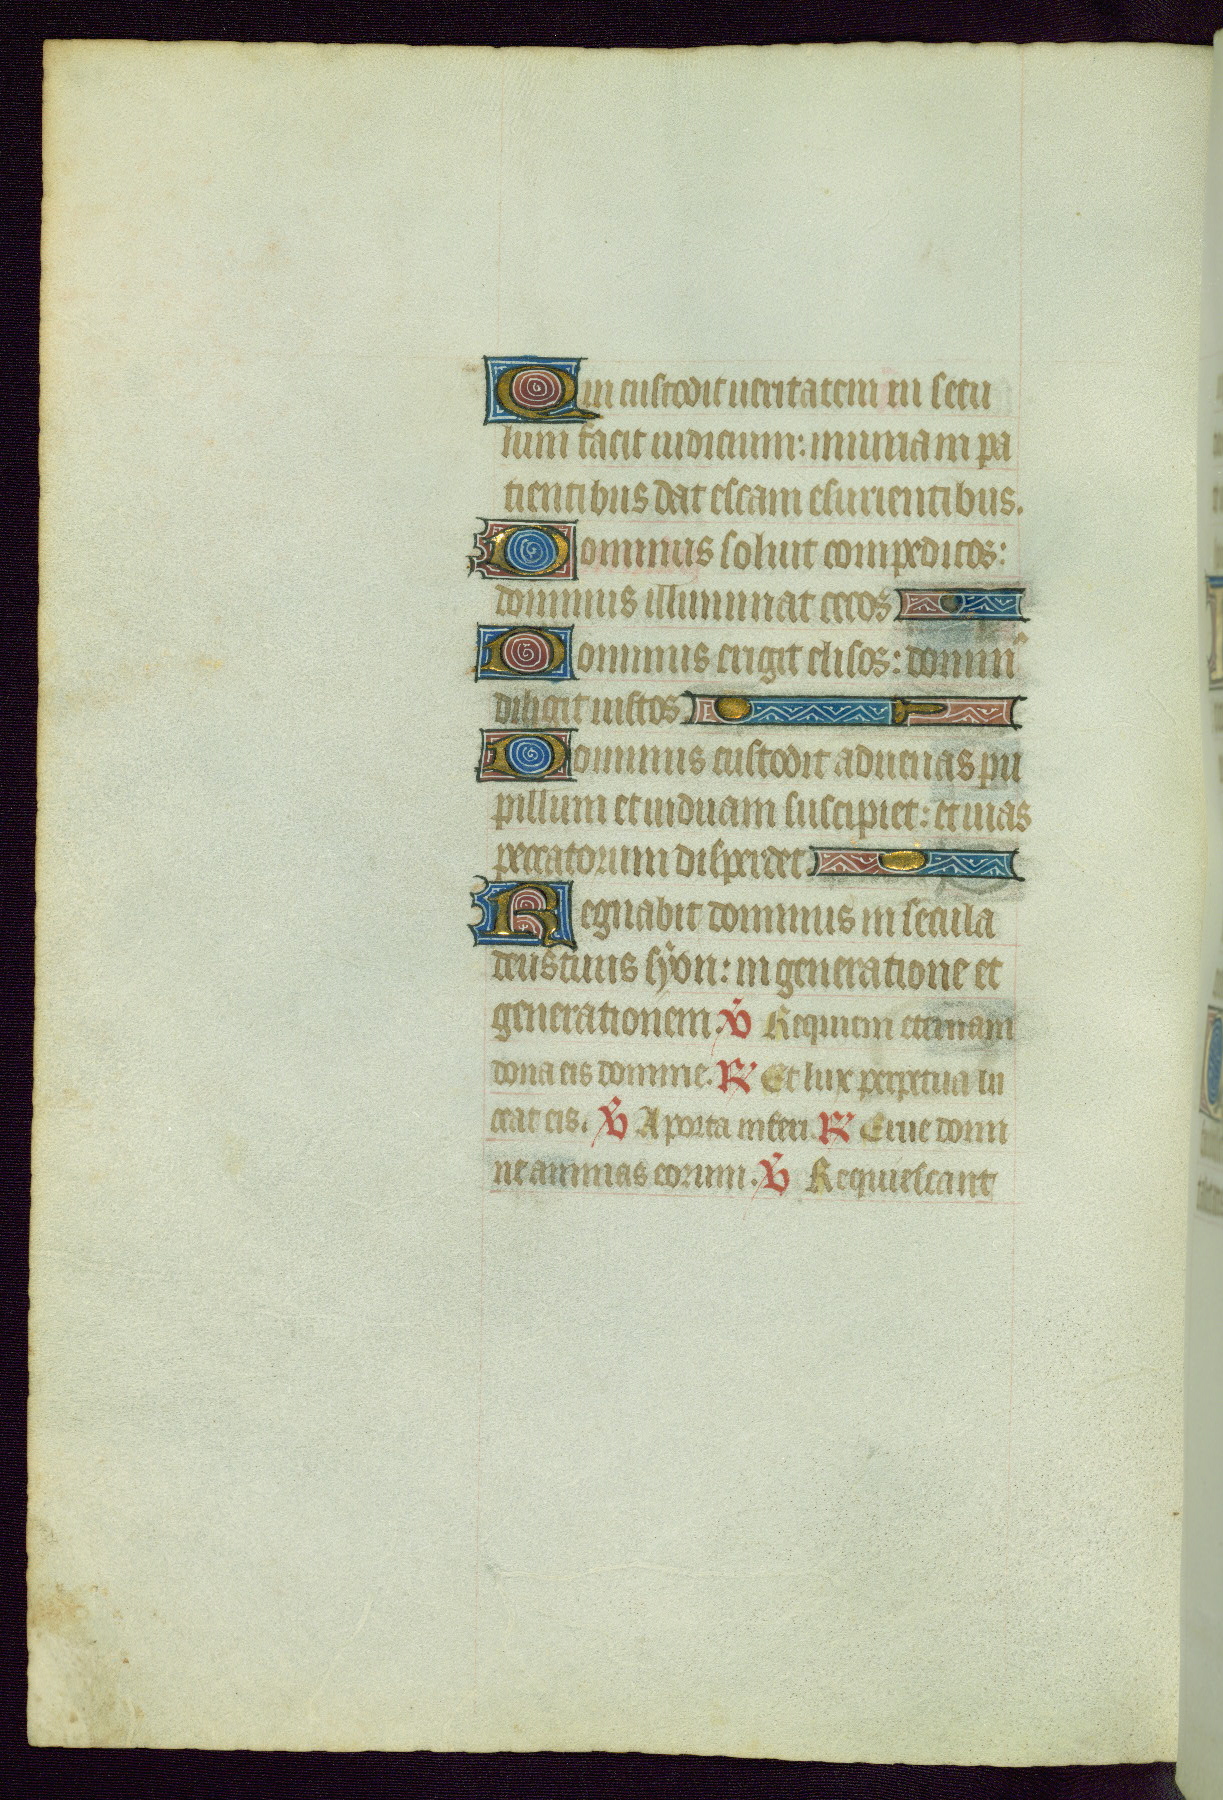 Qui custodit ueritatem in secu
lum facit iudicium: iniuriam pa
tientibus dat escam esurientibus.
Dominus soluit compeditos:
dominus illuminat cecos
Dominus erigit elisos: domin⁹
diligit iustos
Dominus custodit aduenas pu
pillum et uiduam suscipiet: et uias
peccatorum disperdet
Regnabit dominus in secula
deus tuus syon: in generatione et
generationem. ℣ Requiem eternam
dona eis domine. ℟ Et lux perpetua lu
ceat eis. ℣ A porta inferi ℟ Erue domi
ne animas eorum. ℣ Requiescant